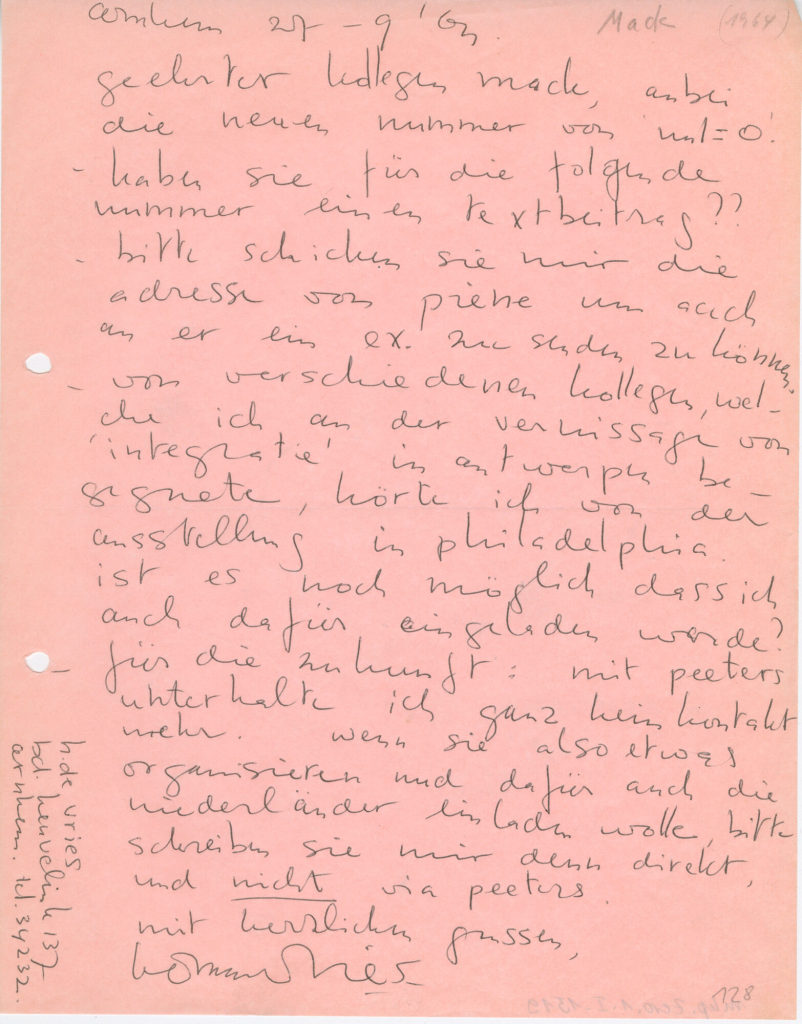 arnhem 27 - 9 '64.
Mack (1964)
geehrter kollegen mack, anbei
die neuen nummer von 'nul=0'.
- haben sie für die folgende
nummer einen textbeitrag??
- bitte schicken sie mir die
adresse von piene um auch
an er ein ex. zu senden zu können.
- von verschiedenen kollegen, wel-
che ich an der vernissage von
'integratie' in antwerpen be-
gegnete, hörte ich von der
ausstellung in philadelphia.
ist es noch möglich dass ich
auch dafür eingeladen werde?
- für die zukunft: mit peeters
unterhalte ich ganz kein kontakt
mehr. wenn sie also etwas
organisieren und dafür auch die
niederländer einladen wolle, bitte
schreiben sie mir denn direkt,
und nicht via peeters.
mit herzlichen grussen,
herman de vries
h. de vries
bd. heuvelink 137
arnhem. tel. 34232.
128